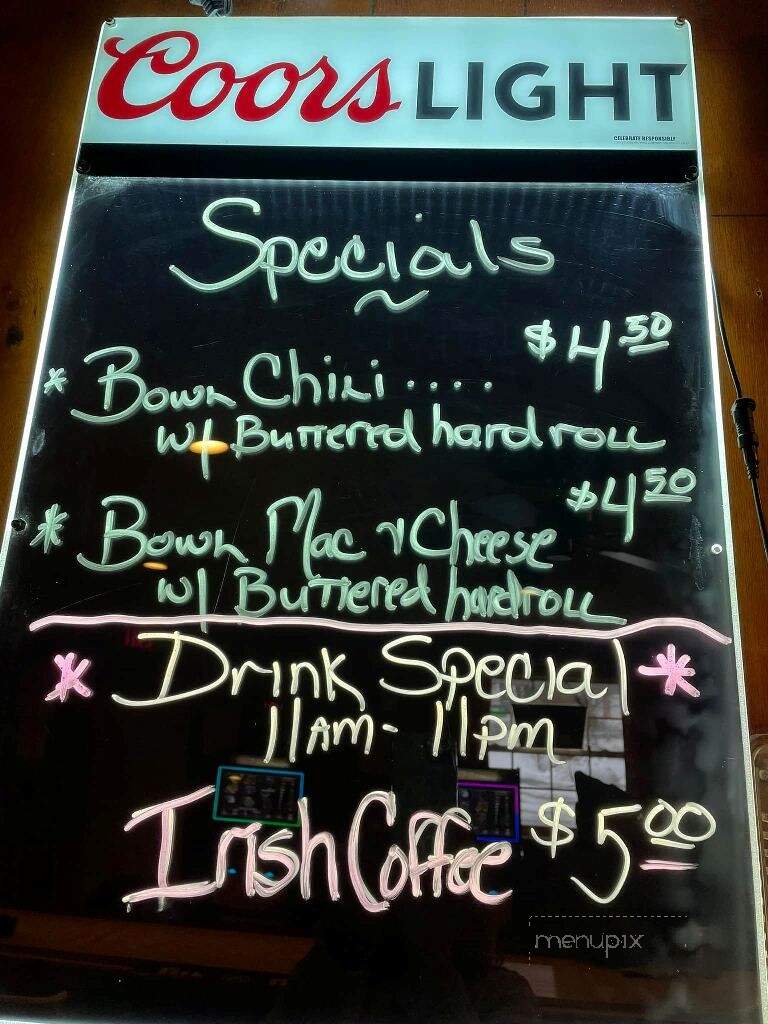 Coors LIGHT
CELEBRATE RESPONSIBLY
Specials
~
$4 50
* Bowl Chili .....
w/ Buttered hard roll
$4 50
* Bowl Mac n Cheese
w/ Buttered hard roll
* Drink Special *
11AM - 11PM
Irish Coffee $5 00
menupix